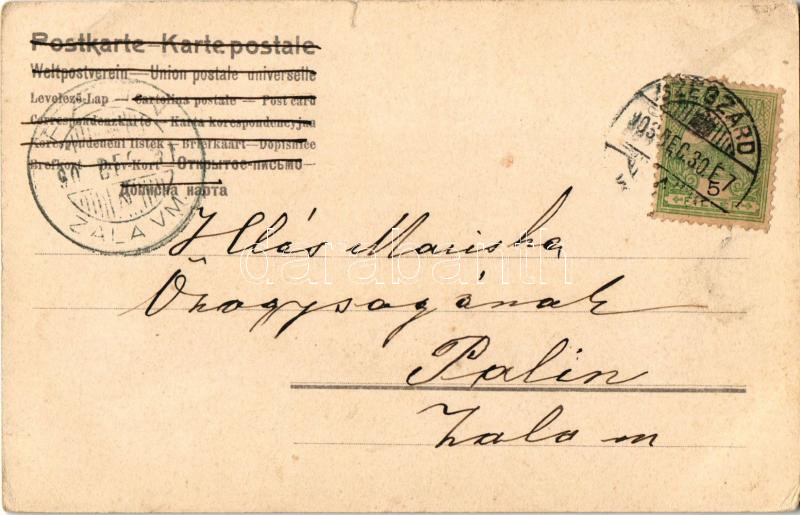 Postkarte — Karte postale
Weltpostverein — Union postale universelle
Levelező-Lap — Cartolina postale — Post card
Correspondenzkarte — Karta korespondencyjna
Korespondenční lístek — Briefkaart — Dopisnice
Brefkort — Brev-Kort — Открытое письмо
Дописна карта
SZEGZÁRD
903 DEC. 30. E 7
5
ZALA VM.
Illés Mariska
Őnagyságának
Palin
Zala m
darabanth